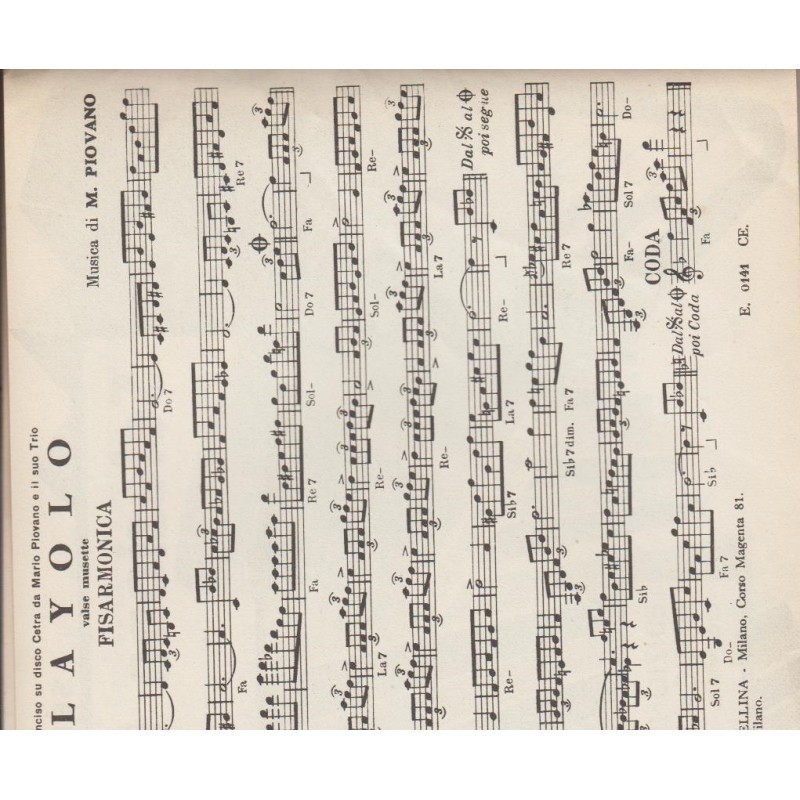 nciso su disco Cetra da Mario Piovano e il suo Trio
LAYOLO
valse musette
FISARMONICA
Musica di M. PIOVANO
Do 7
Fa
Re 7
Fa
Re 7
Sol-
Do 7
Fa
La 7
Re-
Sol-
Re-
Re-
La 7
Re-
Si♭ 7
La 7
Re-
Dal 𝄋 al 𝄌
poi segue
Si♭ 7 dim.
Fa 7
Re 7
Si♭
Fa-
Sol 7
Do-
CODA
Sol 7
Do-
Fa 7
Si♭
Dal 𝄋 al 𝄌
poi Coda
Fa
ELLINA - Milano, Corso Magenta 81.
E. 0141 CE.
ilano.